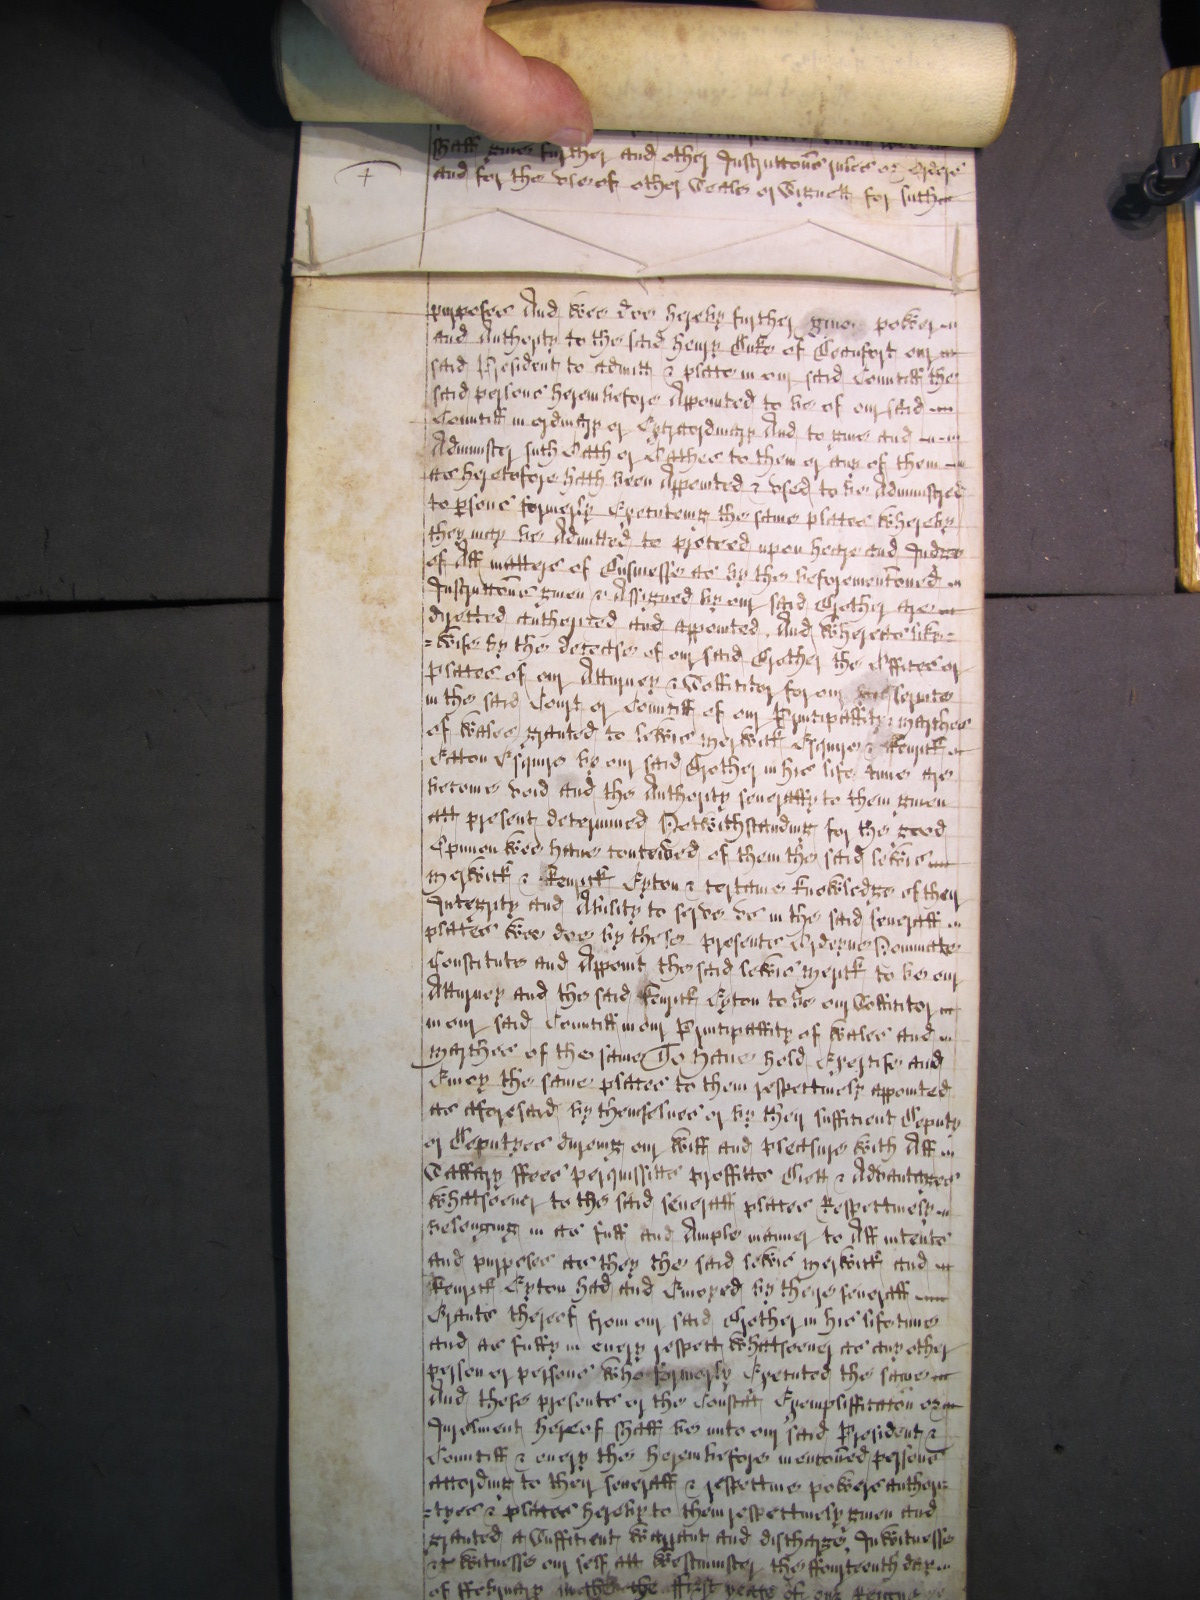 7
shall give further and other Instruttons rules or Orders
and for the use of other Seales or Signett for suth
purposes And wee doe hereby further give power
and Authority to the said Henry Duke of Beaufort our
said President to admitt & plate in our said Countill the
said persons hereinbefore Appointed to be of our said
Countill in ordinary or Extraordinary And to give and
Administer suth Oath or Oathes to them or any of them
as heretofore hath been Appointed & used to be Administred
to psons formerly Executeing the same plates whereby
they may be Admitted to proteed upon heare and Judge
of All matters of Businesse as by the beforementoned
Instruttons given & Assigned by our said Brother are
diretted authorized and appointed. And whereas like=
=wise by the detease of our said Brother the Offites or
plates of our Atturney & Sollititor for our servite
in the said Court or Countill of our Printipallity & marthes
of Wales granted to Lewis Merwitk Esquire & Kenritk
Eaton Esquire by our said Brother in his life time are
betome void and the Authority severally to them given
att present determined Notwithstanding for the good
Opinion wee have conteived of them the said Lewis
Merwitk & Kenritk Eyton & tertaine knowledge of their
Integrity and Ability to serve us in the said severall
plates wee doe by these presents Ordeyne Nominate
Constitute and Appoint the said Lewis Meritk to be our
Atturney and the said Kenritk Eyton to be our Sollititor
in our said Countill in our Printipallity of Wales and
marthes of the same To have hold Exertise and
Enioy the same plates to them respettively appointed
as aforesaid by themselves or by their suffitient Deputy
or Deputyes dureing our will and pleasure with All
Sallary ffees perquissitts proffitts Diett & Advantages
whatsoever to the said severall plates Respettively
belonging in as full and Ample manner to All intents
and purposes as they the said Lewis Merwitk and
Kenritk Eyton had and Enioyed by theire severall
Grants thereof from our said Brother in his lifetime
and as fully in every respett whatsoever as any other
person or persons who formerly Exetuted the same
And these presents or the Constat Exemplifitaton or
Inrolment hereof shall be unto our said President &
Countill & every the hereinbefore mentoned persons
attording to their severall & respettive powers author=
=tyes & plates hereby to them respettively given and
granted a Suffitient warrant and distharge. In witnesse
&t witnesse our self att Westminster the ffourteenth day
of ffebruary in the the ffirst yeare of our Reigne